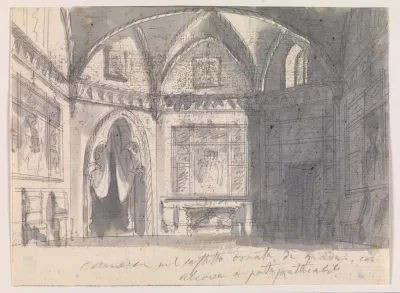 camera nel castello ornata di quadri, con
alcova e porta praticabile